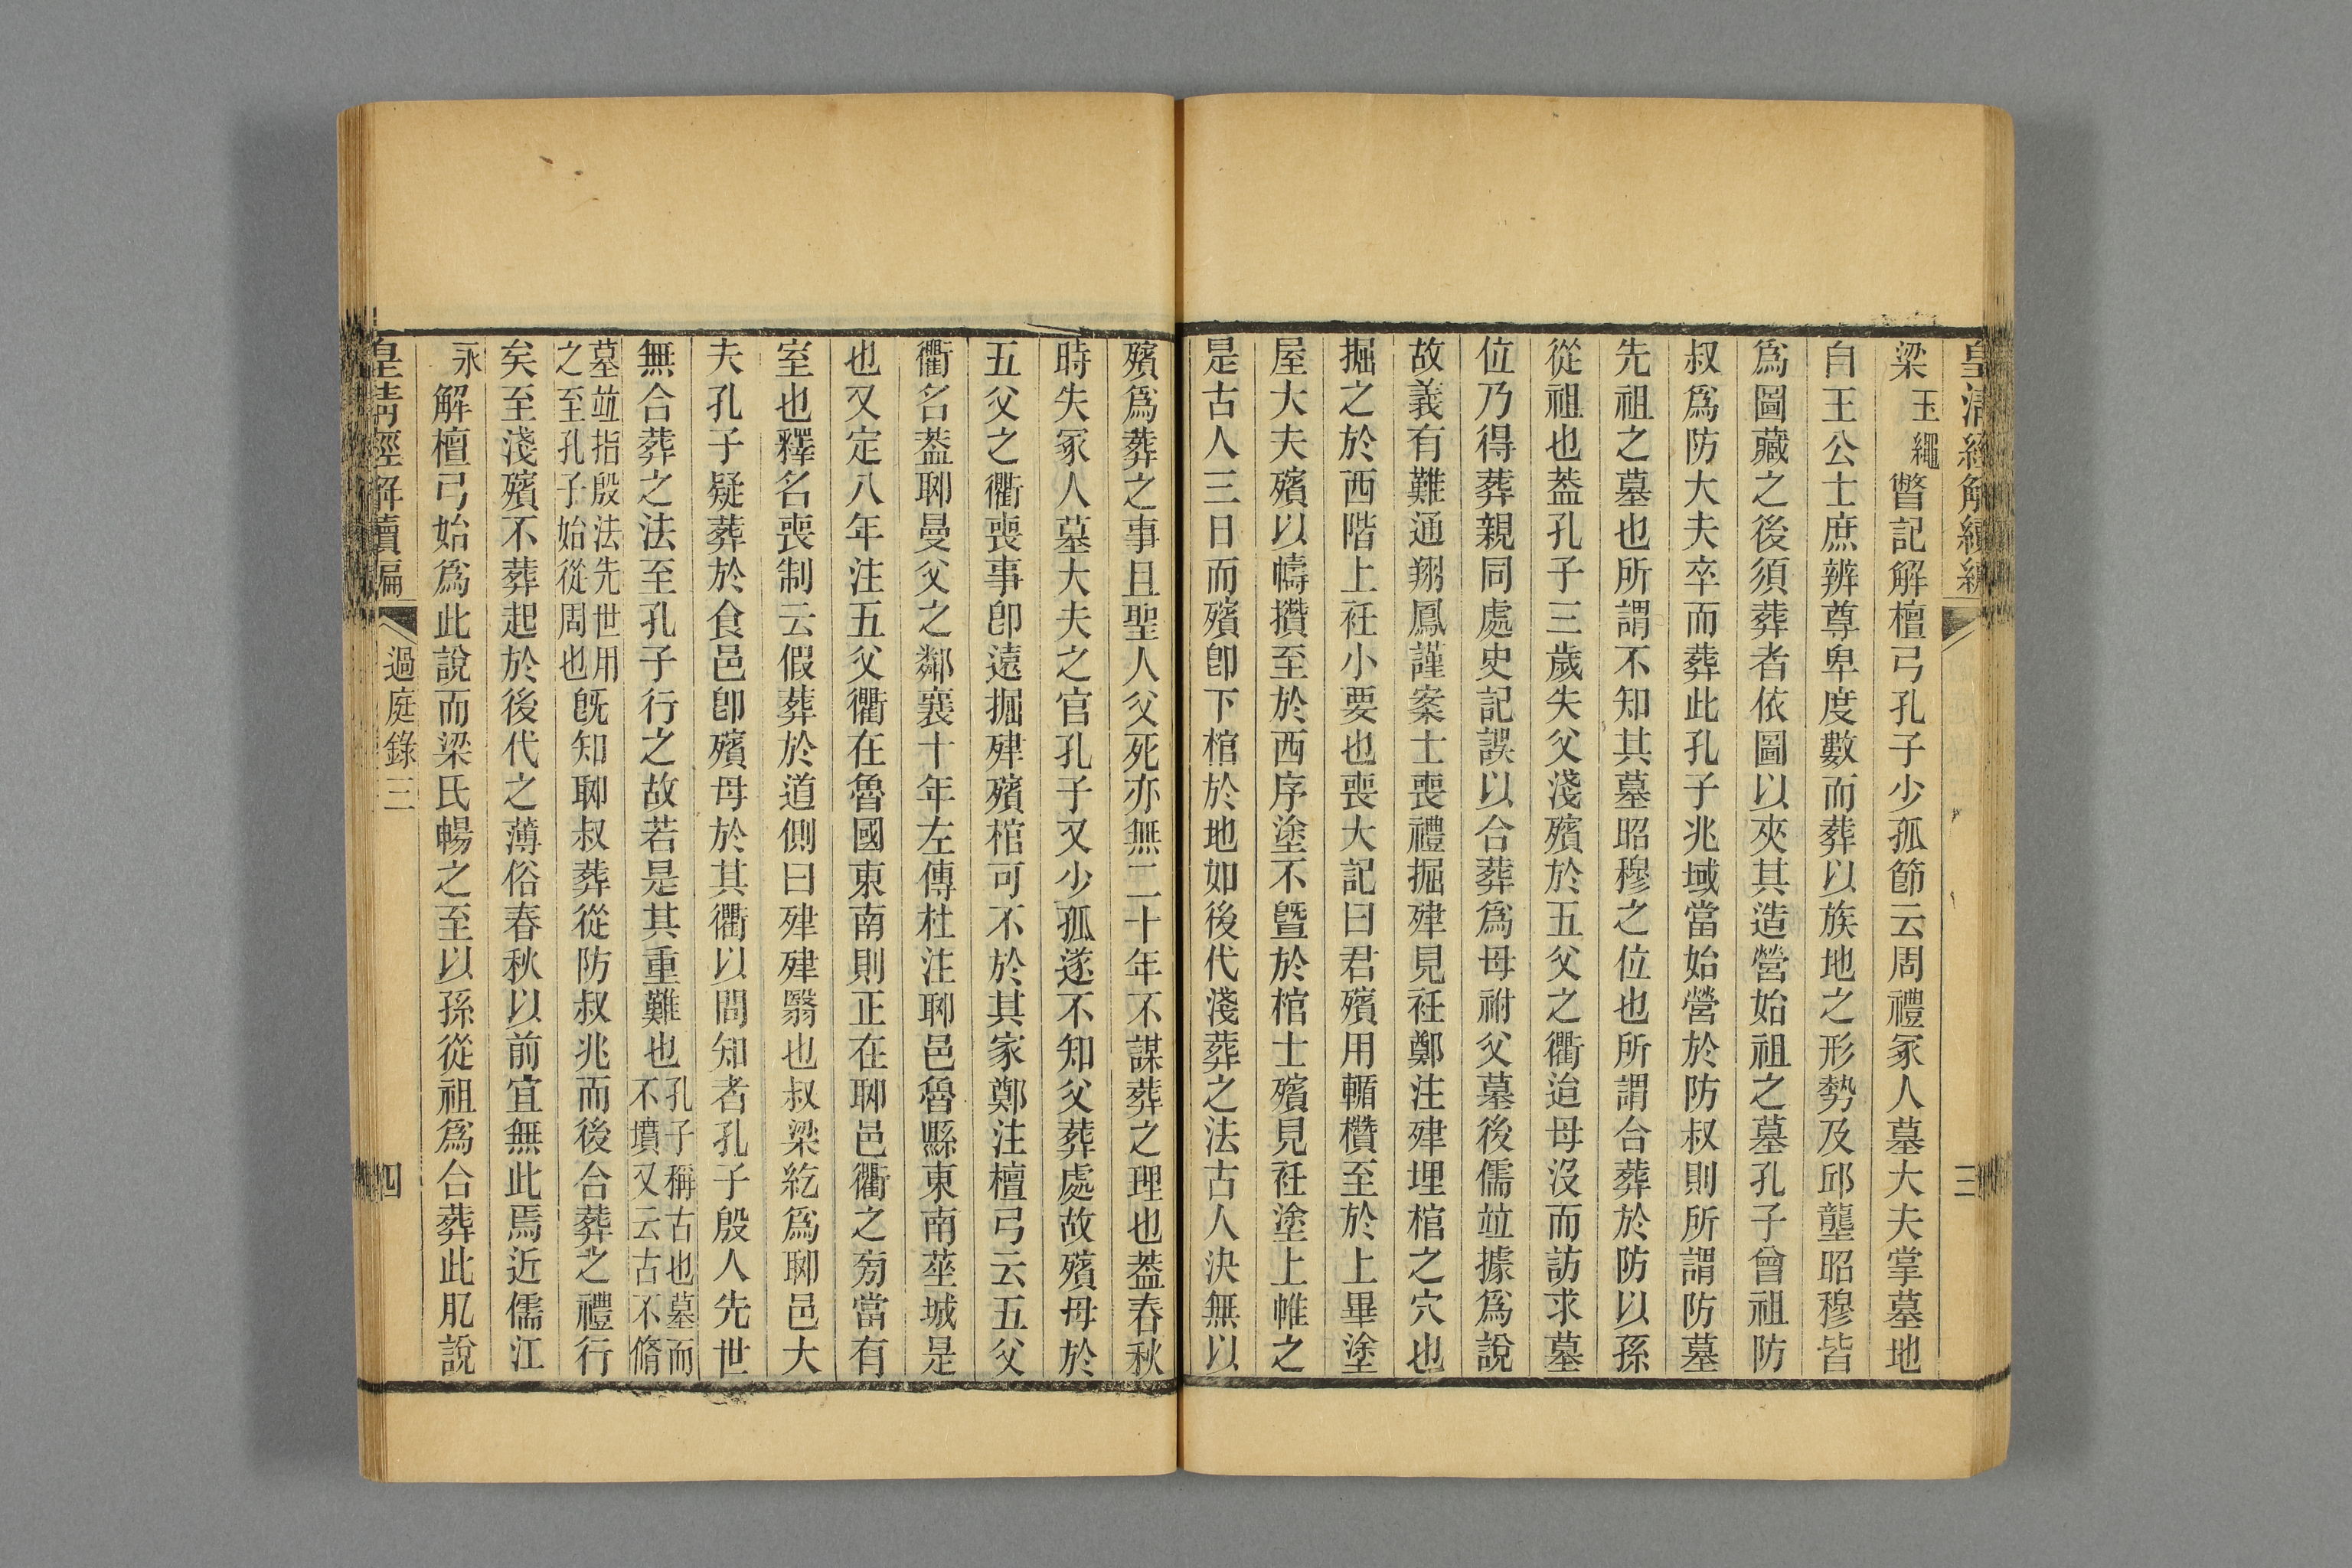 皇清經解續編
三
梁玉繩瞥記解檀弓孔子少孤節云周禮冢人墓大夫掌墓地
自王公士庶辨尊卑度數而葬以族地之形勢及邱壟昭穆皆
爲圖藏之後須葬者依圖以夾其造營始祖之墓孔子曾祖防
叔爲防大夫卒而葬此孔子兆域當始營於防叔則所謂防墓
先祖之墓也所謂不知其墓昭穆之位也所謂合葬於防以孫
從祖也葢孔子三歲失父淺殯於五父之衢迨母沒而訪求墓
位乃得葬親同處史記誤以合葬爲母祔父墓後儒竝據爲說
故義有難通翔鳳謹案士喪禮掘肂見衽鄭注肂埋棺之穴也
掘之於西階上衽小要也喪大記曰君殯用輴欑至於上畢塗
屋大夫殯以幬攢至於西序塗不曁於棺士殯見衽塗上帷之
是古人三日而殯卽下棺於地如後代淺葬之法古人決無以
殯爲葬之事且聖人父死亦無二十年不謀葬之理也葢春秋
時失冢人墓大夫之官孔子又少孤遂不知父葬處故殯母於
五父之衢喪事卽遠掘肂殯棺可不於其家鄭注檀弓云五父
衢名葢郰曼父之鄰襄十年左傳杜注郰邑魯縣東南莝城是
也又定八年注五父衢在魯國東南則正在郰邑衢之旁當有
室也釋名喪制云假葬於道側曰肂肂翳也叔梁紇爲郰邑大
夫孔子疑葬於食邑卽殯母於其衢以問知者孔子殷人先世
無合葬之法至孔子行之故若是其重難也孔子稱古也墓而
不墳又云古不脩
墓竝指殷法先世用
之至孔子始從周也旣知郰叔葬從防叔兆而後合葬之禮行
矣至淺殯不葬起於後代之薄俗春秋以前宜無此焉近儒江
永解檀弓始爲此說而梁氏暢之至以孫從祖爲合葬此肊說
皇清經解續編
過庭錄三
四